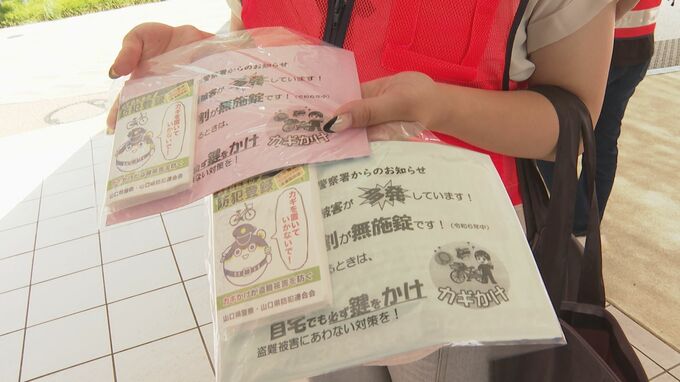 警察署からのお知らせ
多発しています！
割が無施錠です！（令和6年中）
るときは、
必ず鍵をかけ
カギかけ
を！
カギを置いて
いかないで！
カギかけが盗難被害を防ぐ
山口県警察・山口県防犯連合会
警察署からのお知らせ
被害が多発しています！
割が無施錠です！（令和6年中）
るときは、
自宅でも必ず鍵をかけ
盗難被害にあわない対策を！
カギかけ
防犯登録
カギを置いて
いかないで！
カギかけが盗難被害を防ぐ
山口県警察・山口県防犯連合会